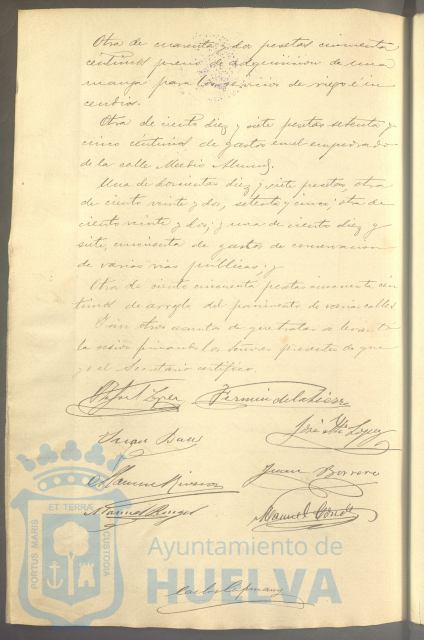 Otra de cuarenta y dos pesetas cincuenta
céntimos precio de adquisicion de una
manga para los servicios de riego é in
cendios.
Otra de ciento diez y siete pesetas setenta y
cinco céntimos de gastos en el empedrado
de la calle Medio Almud.
Una de doscientas diez y siete pesetas, otra
de ciento veinte y dos, setenta y cinco; otra de
ciento veinte y dos; y una de ciento diez y
siete, cincuenta de gastos de conservacion
de varias vias publicas; y
Otra de ciento cincuenta pesetas cincuenta cén
timos de arreglo del pavimento de varias calles
Y sin otros asuntos de que tratar se levantó
la sesion firmando los Señores presentes de que
yo el Secretario certifico.
Rafael Lopez
Fermin de la
José Mª Lopez
Juan
Manuel Rivera
Juan Borrero
Manuel Rengel
Manuel Conde
PORTUS MARIS ET TERRÆ CUSTODIA
Ayuntamiento de
HUELVA